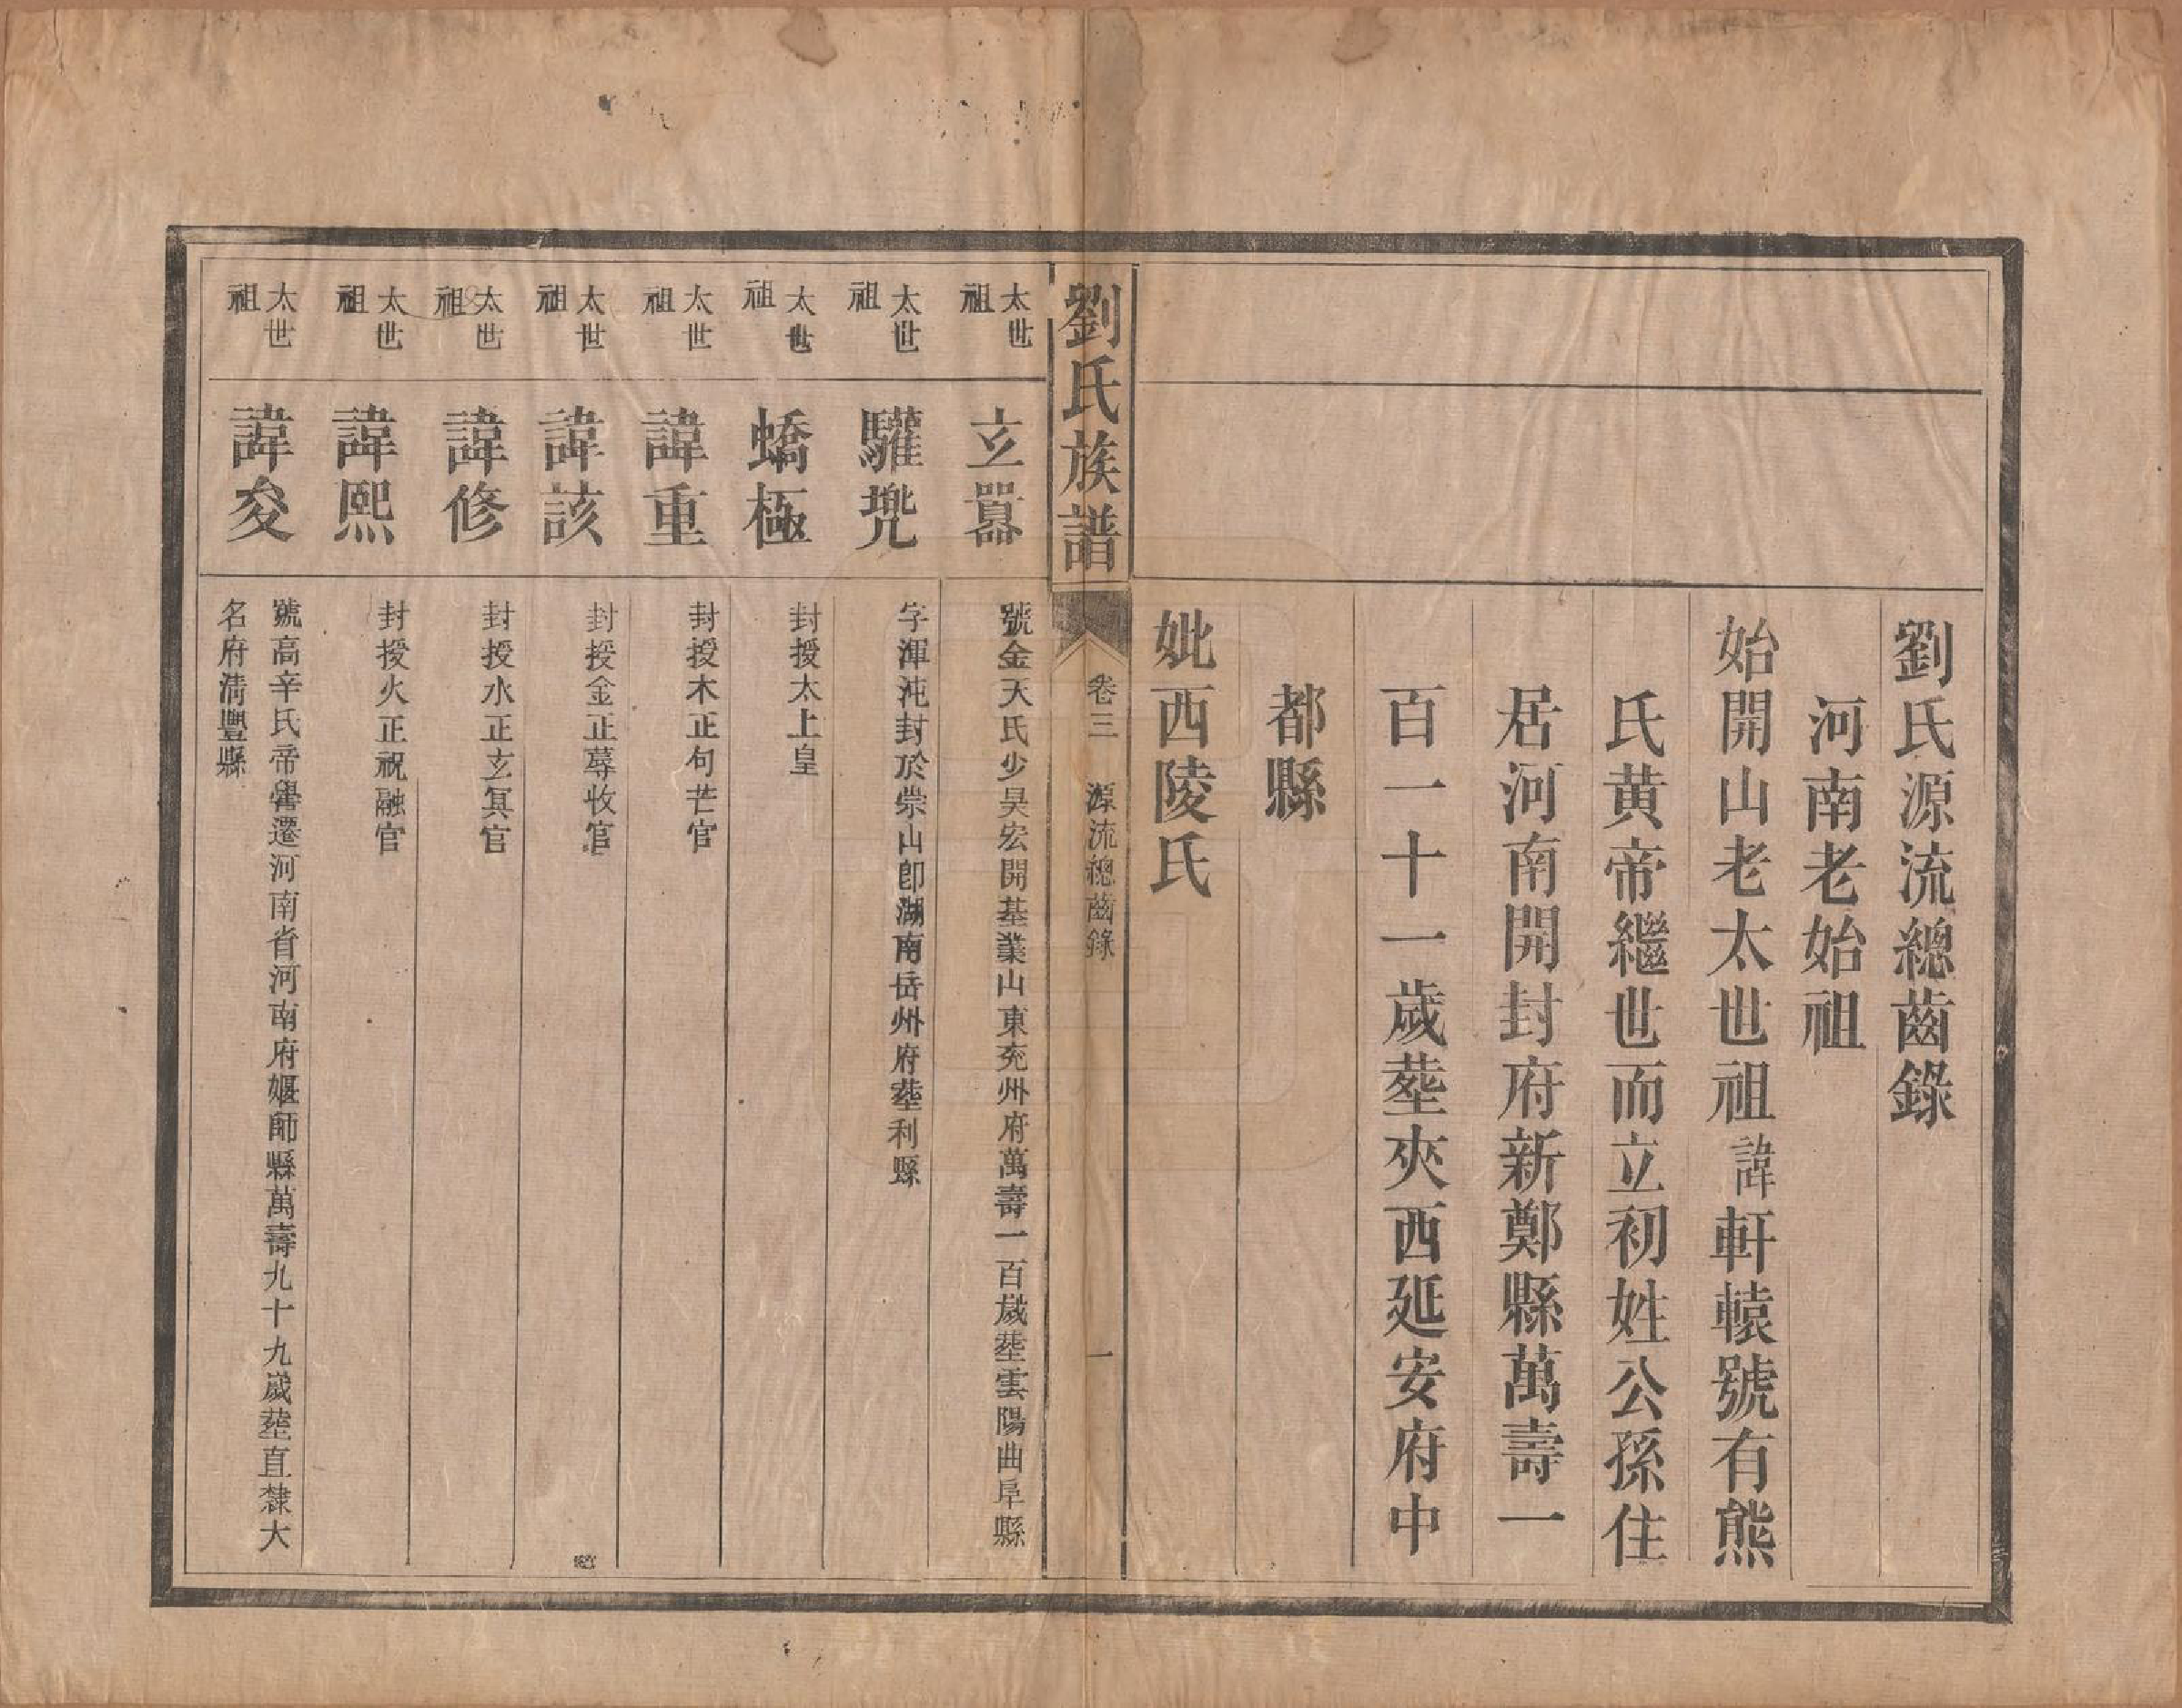 劉氏源流總齒錄
河南老始祖
始開山老太世祖諱軒轅號有熊
氏黄帝繼世而立初姓公孫住
居河南開封府新鄭縣萬壽一
百一十一歲塟夾西延安府中
都縣
妣西陵氏
劉氏族譜
卷三 源流總齒錄 一
太世祖 玄囂 號金天氏少昊宏開基業山東兖州府萬壽一百歲塟雲陽曲阜縣
太世祖 驩兜 字渾沌封於崇山卽湖南岳州府塟利縣
太世祖 蟜極 封授太上皇
太世祖 諱重 封授木正句芒官
太世祖 諱該 封授金正蓐收官
太世祖 諱修 封授水正玄冥官
太世祖 諱熙 封授火正祝融官
太世祖 諱夋 號高辛氏帝嚳遷河南省河南府偃師縣萬壽九十九歲塟直隸大
名府清豐縣